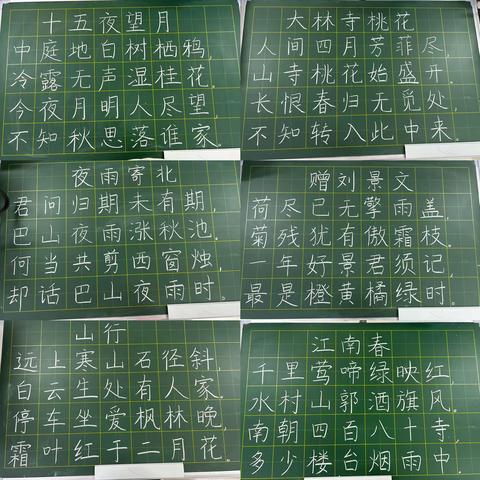 十五夜望月
中庭地白树栖鸦,
冷露无声湿桂花。
今夜月明人尽望,
不知秋思落谁家。
大林寺桃花
人间四月芳菲尽,
山寺桃花始盛开。
长恨春归无觅处,
不知转入此中来。
夜雨寄北
君问归期未有期,
巴山夜雨涨秋池。
何当共剪西窗烛,
却话巴山夜雨时。
赠刘景文
荷尽已无擎雨盖,
菊残犹有傲霜枝。
一年好景君须记,
最是橙黄橘绿时。
山行
远上寒山石径斜,
白云生处有人家。
停车坐爱枫林晚,
霜叶红于二月花。
江南春
千里莺啼绿映红,
水村山郭酒旗风。
南朝四百八十寺,
多少楼台烟雨中。